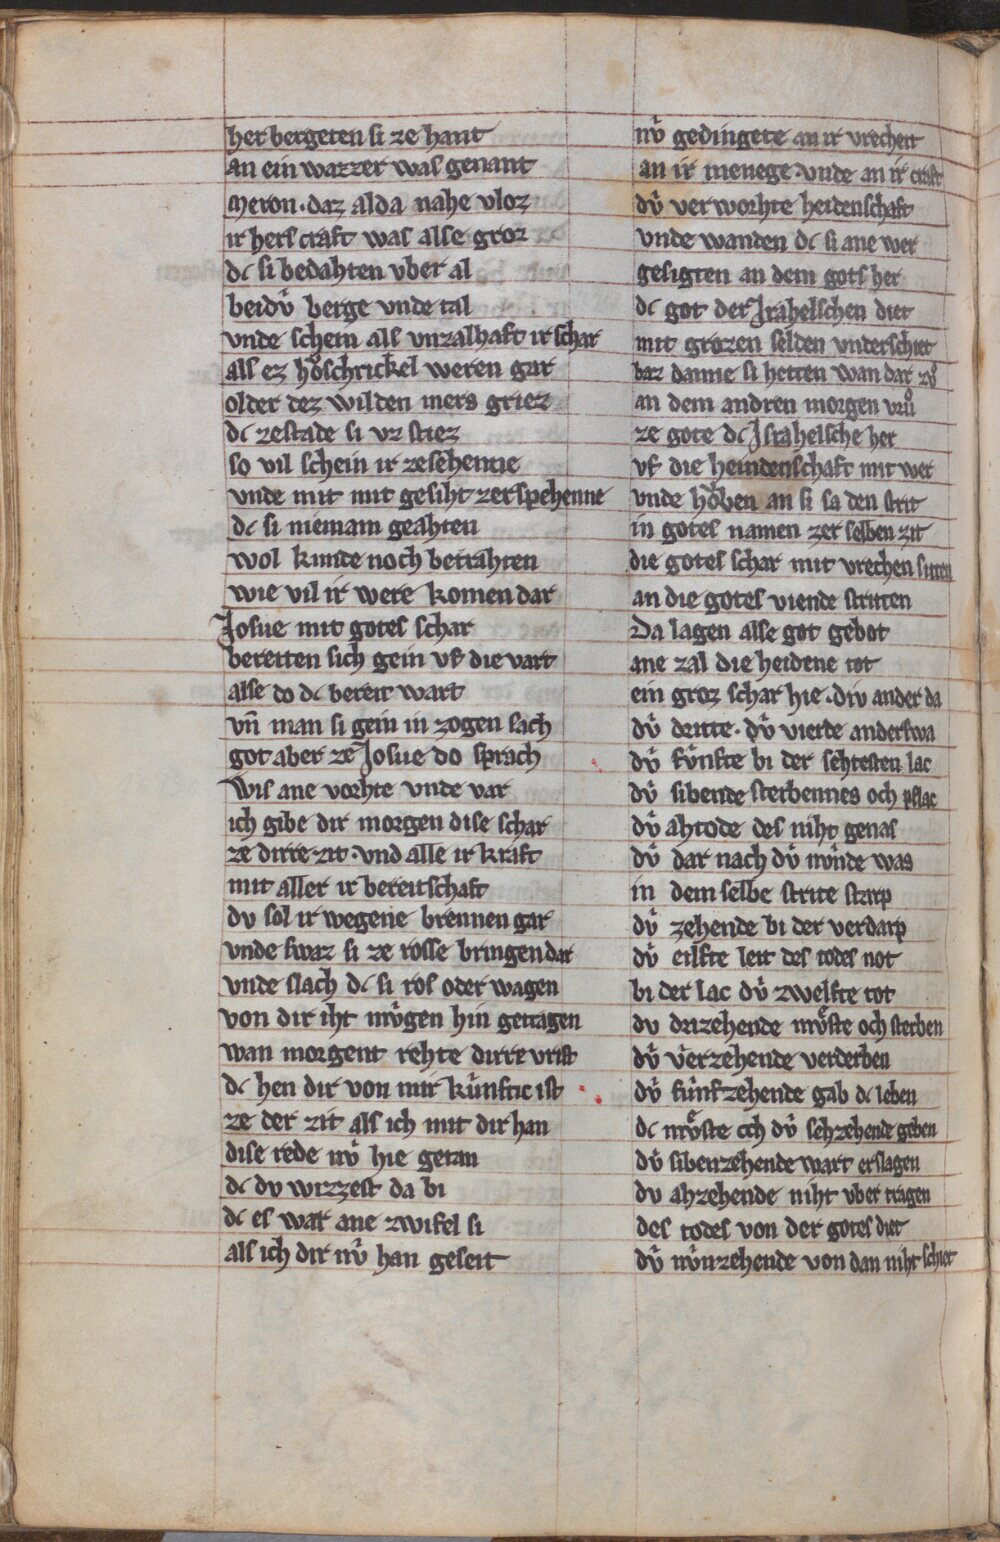 her bergeten si ze hant
an ein wazzer was genant
Meron · daz alda nahe vloz
ir hers craft was alse groz
dc si bedahten vber al
beidv̂ berge vnde tal
vnde schein als vnzalhaft ir schar
als ez hoͮschrickel weren gar
older dez wilden mers griez
dc zestade si vz stiez
so vil schein ir zesehenne
vnde mit mit gesiht zerspehenne
dc si nieman geahten
wol kunde noch betrahten
wie vil ir were komen dar
Josue mit gotes schar
bereiten sich gein vf die vart
alse do dc bereit wart
vn̄ man si gein in zogen sach
got aber ze Josue do sprach
Wis ane vorhte vnde var
ich gibe dir morgen dise schar
ze dirre zit · vnd alle ir kraft
mit aller ir bereitschaft
dv sol ir wegene brennen gar
vnde swaz si ze rosse bringen dar
vnde slach dc si ros oder wagen
von dir iht mv̂gen hin getragen
wan morgent rehte dirre vrist
dc hen dir von mir kv̂nftic ist
ze der zit als ich mit dir han
dise rede nv̂ hie getan
dc dv wizzest da bi
dc es war ane zwifel si
als ich dir nv̂ han geseit
nv̂ gedingete an ir vrecheit
an ir menege · vnde an ir craft
dv̂ verworhte heidenschaft
vnde wanden dc si ane wer
gesigten an dem gots her
dc got der Jrahelschen diet
mit grozen selden vnderschiet
baz danne si hetten wan dar zoͮ
an dem andren morgen vruͦ
ze gote dc Jsrahelsche her
vf die heindenschaft mit wer
vnde hoͮben an si sa den strit
in gotes namen zer selben zit
die gotes schar mit vrechen sitten
an die gotes viende stritten
Da lagen alse got gebot
ane zal die heidene tot
ein groz schar hie · div ander da
dv̂ dritte · dv̂ vierde anderswa
dv̂ fv̂nfte bi der sehtesten lac
dv̂ sibende sterbennes och pflac
dv̂ ahtode des niht genas
dv̂ dar nach dv̂ nv̂nde was
in dem selbe strite starp
dv̂ zehende bi der verdarp
dv̂ eilfte leit des todes not
bi der lac dv̂ zwelfte tot
dv drizehende mvͤste och sterben
dv̂ vierzehende verderben
dv̂ fv̂nfzehende gab dc leben
dc mvͤste och dv̂ sehzehende geben
dv̂ sibenzehende wart erslagen
dv ahzehende niht vber tragen
des todes von der gotes diet
dv̂ nv̂nzehende von dan niht schiet